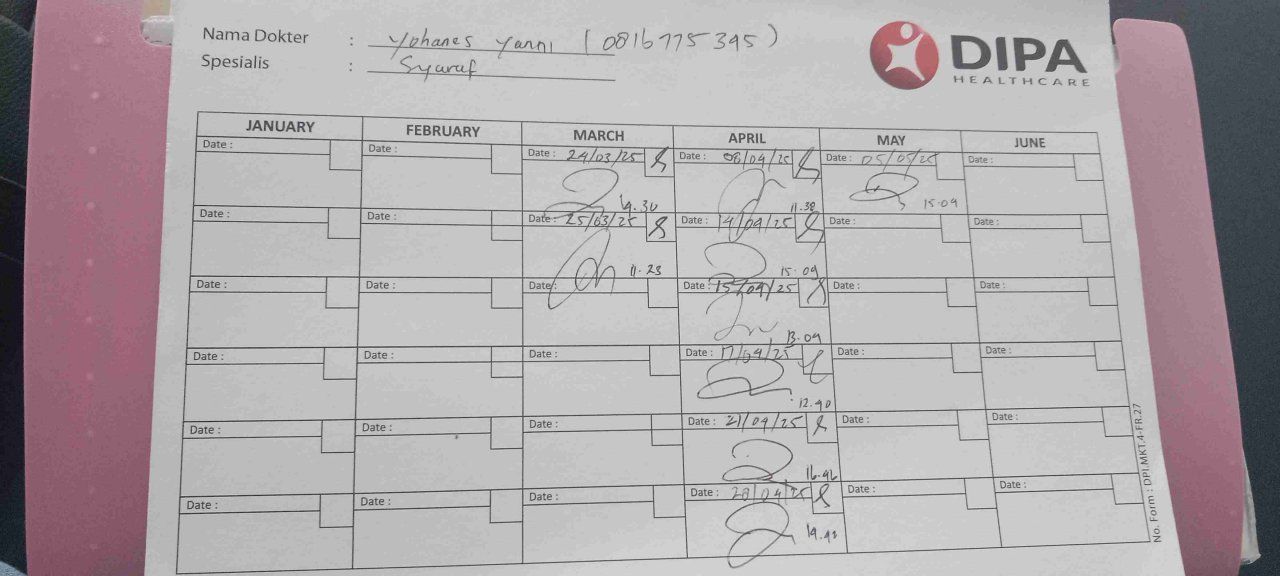 Nama Dokter : Yohanes Yanni (0816775395)
Spesialis : Syaraf
DIPA
HEALTHCARE
JANUARY FEBRUARY MARCH APRIL MAY JUNE
Date : Date : Date : 24/03/25 Date : 08/04/25 Date : 05/05/25 Date :
14.30 11.38 15.04
Date : Date : Date : 25/03/25 Date : 14/04/25 Date : Date :
11.23 15.04
Date : Date : Date : Date : 15/04/25 Date : Date :
13.04
Date : Date : Date : Date : 17/04/25 Date : Date :
12.40
Date : Date : Date : Date : 21/04/25 Date : Date :
16.46
Date : Date : Date : Date : 28/04/25 Date : Date :
14.42
No. Form : DPI.MKT.4-FR.27